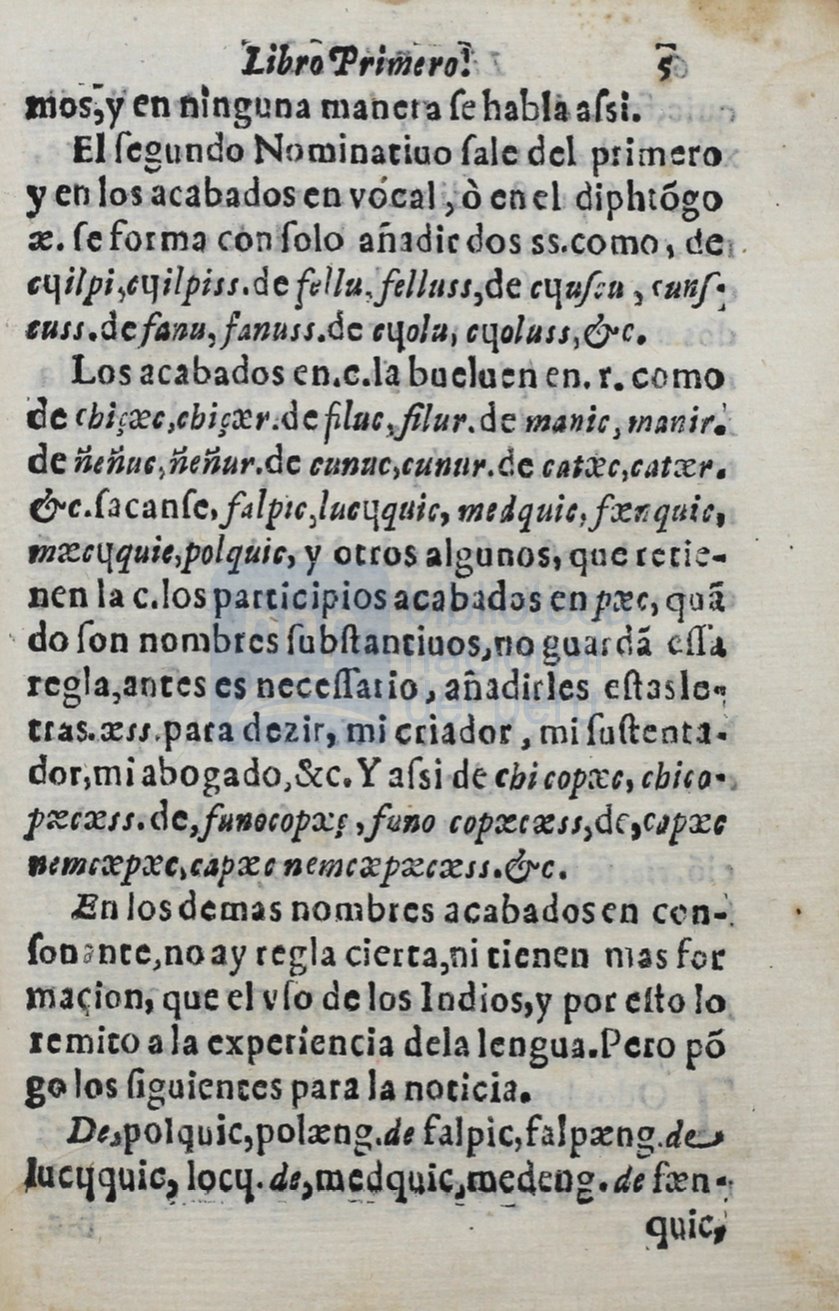 Libro Primero. 5
mos, y en ninguna manera se habla assi.
El segundo Nominatiuo sale del primero
y en los acabados en vócal, ò en el diphtõgo
æ. se forma con solo añadir dos ss. como, de
cɥilpi, cɥilpiss. de fellu, felluss, de cɥuscu, cuns-
cuss. de fanu, fanuss. de cɥolu, cɥoluss, &c.
Los acabados en. c. la bueluen en. r. como
de chiçæc, chiçær. de filuc, filur. de manic, manir.
de ñeñuc, ñeñur. de cunuc, cunur. de catæc, catær.
&c. sacanse, falpic, lucɥquic, medquic, fænquic,
mæcɥquic, polquic, y otros algunos, que retie-
nen la c. los participios acabados en pæc, quã
do son nombres substantiuos, no guardã essa
regla, antes es necessario, añadirles estas le-
tras. æss. para dezir, mi criador, mi sustenta-
dor, mi abogado, &c. Y assi de chicopæc, chico-
pæcæss. de, funocopæç, funo copæcæss, de, capæc
nemcæpæc, capæc nemcæpæcæss. &c.
En los demas nombres acabados en con-
sonante, no ay regla cierta, ni tienen mas for
maçion, que el vso de los Indios, y por esto lo
remito a la experiencia dela lengua. Pero põ
go los siguientes para la noticia.
De, polquic, polæng. de falpic, falpæng. de
lucɥquic, locɥ. de, medquic, medeng. de fæn-
quic,